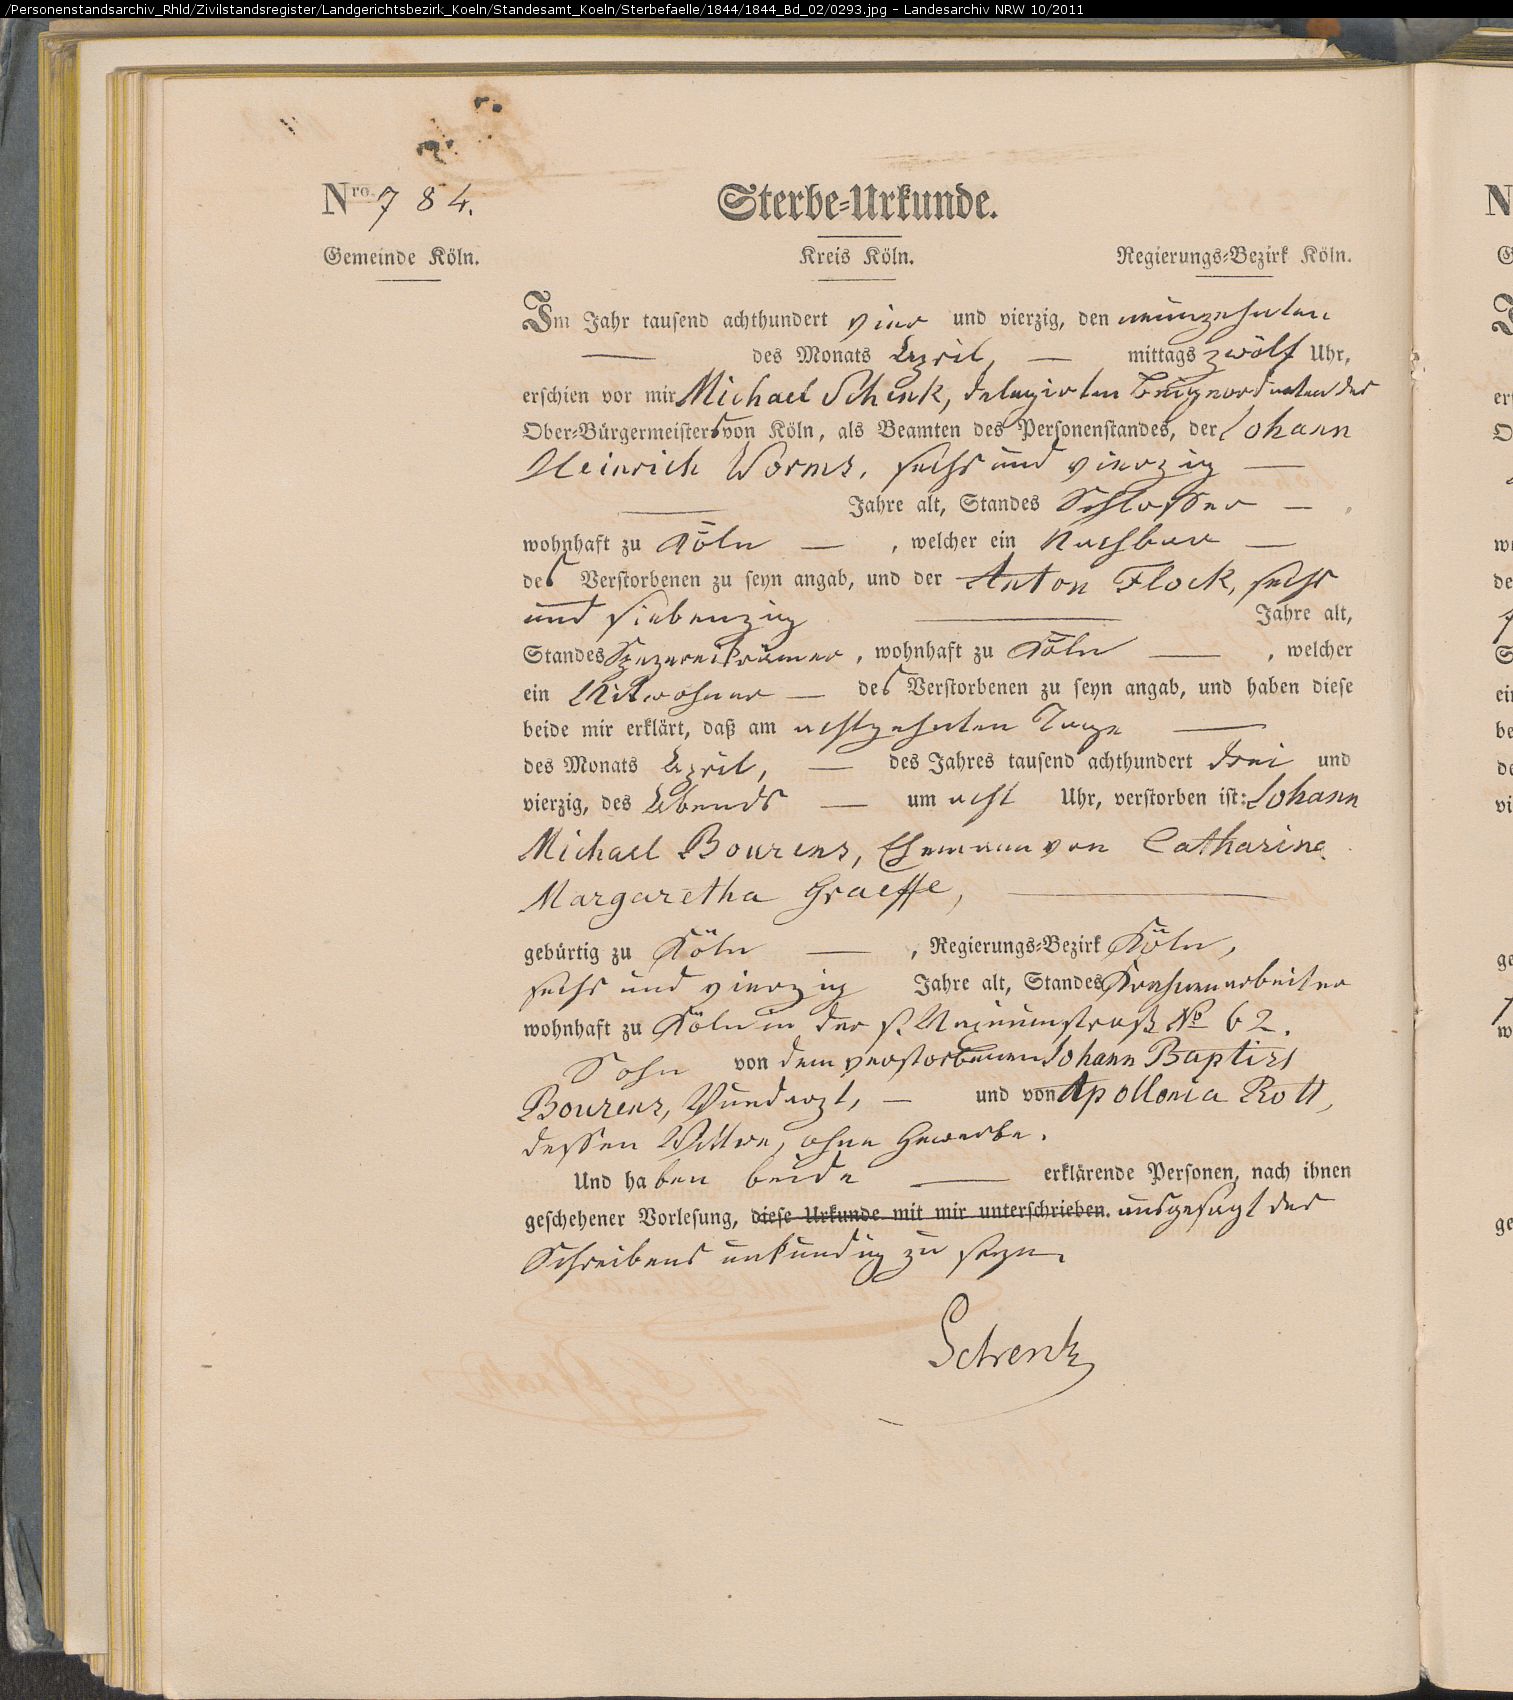 /Personenstandsarchiv_Rhld/Zivilstandsregister/Landgerichtsbezirk_Koeln/Standesamt_Koeln/Sterbefaelle/1844/1844_Bd_02/0293.jpg - Landesarchiv NRW 10/2011
Nro. 784.
Sterbe-Urkunde.
Gemeinde Köln. Kreis Köln. Regierungs-Bezirk Köln.
Im Jahr tausend achthundert vier und vierzig, den neunzehnten
des Monats April, — mittags zwölf Uhr,
erschien vor mir Michael Schenk, delegirten Beigeordneten des
Ober-Bürgermeisters von Köln, als Beamten des Personenstandes, der Johann
Heinrich Worms, sechs und vierzig —
Jahre alt, Standes Schlosser — ,
wohnhaft zu Köln — , welcher ein Nachbar —
des Verstorbenen zu seyn angab, und der Anton Flock, sechs
und siebenzig — Jahre alt,
Standes Spezereikrämer, wohnhaft zu Köln — , welcher
ein Mitwohner — des Verstorbenen zu seyn angab, und haben diese
beide mir erklärt, daß am achtzehnten Tage —
des Monats April, — des Jahres tausend achthundert drei und
vierzig, des Abends — um acht Uhr, verstorben ist: Johann
Michael Bourens, Ehemann von Catharina
Margaretha Graeffe, —
gebürtig zu Köln — , Regierungs-Bezirk Köln,
sechs und vierzig Jahre alt, Standes Krahnenarbeiter
wohnhaft zu Köln in der Straß No 62.
Sohn von dem verstorbenen Johann Baptist
Bourens, Wundarzt, — und von Apollonia Rott,
dessen Wittwe, ohne Gewerbe.
Und haben beide — erklärende Personen, nach ihnen
geschehener Vorlesung, diese Urkunde mit mir unterschrieben. ausgesagt des
Schreibens unkundig zu seyn.
Schenk